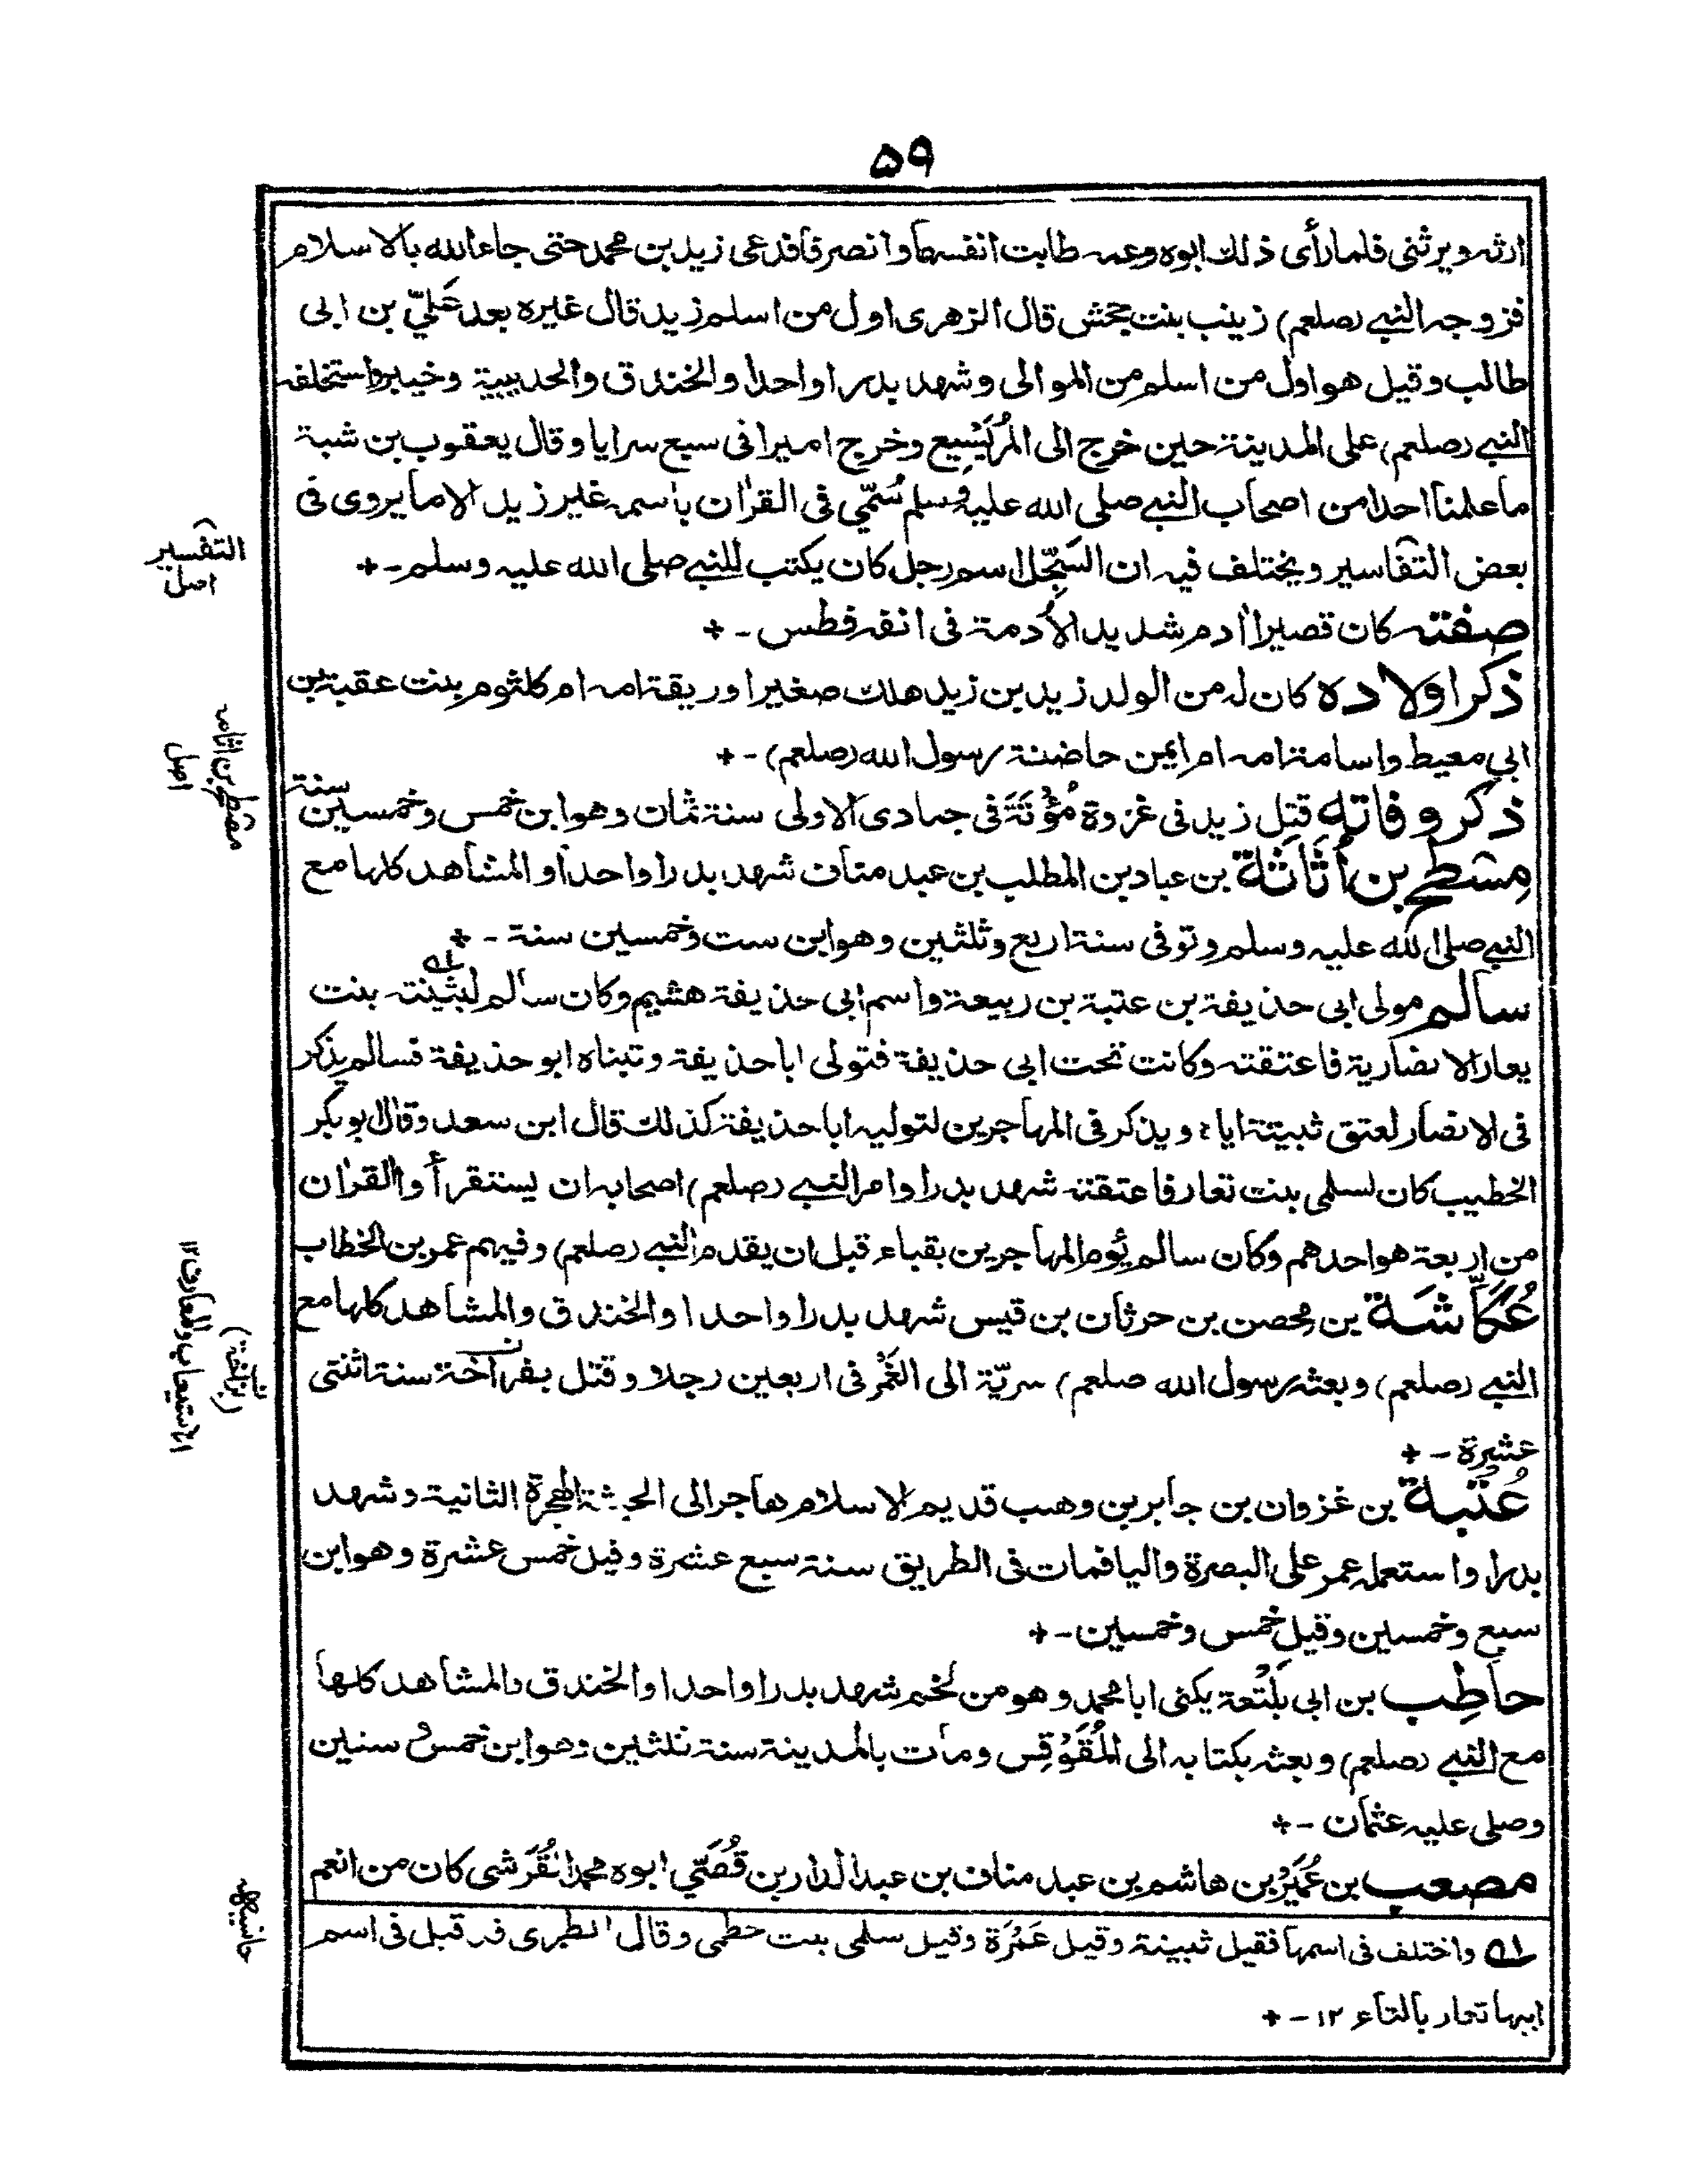 ۵۹
ارثه ويرثنى فلما رأى ذلك ابوه وعمه طابت انفسهما وانصرفا فدعى زيد بن محمد حتى جاء الله بالاسلام
فزوجه النبى (صلعم) زينب بنت جحش قال الزهرى اول من اسلم زيد قال غيره بعد عَلِيّ بن ابى
طالب وقيل هو اول من اسلم من الموالى وشهد بدرا واحدا والخندق والحديبية وخيبر واستخلفه
النبى (صلعم) على المدينة حين خرج الى المُرَيْسِيع وخرج اميرا فى سبع سرايا وقال يعقوب بن شبة
ما علمنا احدا من اصحاب النبى صلى الله عليه وسلم سُمّي فى القرأن باسمه غير زيد الا ما يروى فى
بعض التفاسير ويختلف فيه ان السّجِلّ اسم رجل كان يكتب للنبى صلى الله عليه وسلم ـ +
التفسير)
اصل
صفته كان قصيرا أدم شديد الأدمة فى انفه فطس ـ +
ذكر اولاده كان له من الولد زيد بن زيد هلك صغيرا ورقية امه ام كلثوم بنت عقبة بن
ابي معيط واسامة امه ام ايمن حاضنة رسول الله (صلعم) ـ +
ذكر وفاته قتل زيد فى غزوة مُؤْتَةَ فى جمادى الاولى سنة ثمان وهو ابن خمس وخمسين سنة
مِسْطح بن أُثَاثَة بن عباد بن المطلب بن عبد مناف شهد بدرا واحدا والمشاهد كلها مع
اصل
النبى صلى الله عليه وسلم وتوفى سنة اربع وثلثين وهو ابن ست وخمسين سنة ـ +
سالم مولى ابى حذيفة بن عتبة بن ربيعة واسم ابى حذيفة هشيم وكان سالم لبثينته بنت
يعار الانصارية فاعتقته وكانت تحت ابى حذيفة فتولى ابا حذيفة وتبناه ابو حذيفة فسالم يذكر
فى الانصار لعتق ثبيتة اياه ويذكر فى المهاجرين لتوليه ابا حذيفة كذلك قال ابن سعد وقال ابو بكر
الخطيب كان لسلمى بنت تعار فاعتقته شهد بدرا وامر النبى (صلعم) اصحابه ان يستقرأوا القرأن
من اربعة هو احدهم وكان سالم يؤم المهاجرين بقباء قبل ان يقدم النبى (صلعم) وفيهم عمر بن الخطاب
عُكَّاشَة بن محصن بن حرثان بن قيس شهد بدرا واحدا والخندق والمشاهد كلها مع
النبى (صلعم) وبعثه رسول الله صلعم) سريّة الى الغَمْر فى اربعين رجلا وقتل سنة اثنتى
(بزاخة)
الاستيعاب والمعارف ۱۲
عشرة ـ +
عُتْبَة بن غزوان بن جابر بن وهب قديم الاسلام هاجر الى الحبشة الهجرة الثانية وشهد
بدرا واستعمله عمر على البصرة واليا فمات فى الطريق سنة سبع عشرة وقيل خمس عشرة وهو ابن
سبع وخمسين وقيل خمس وخمسين ـ +
حاطِب بن ابى بَلْتَعة يكنى ابا محمد وهو من لخم شهد بدرا واحدا والخندق والمشاهد كلها
مع النبى (صلعم) وبعثه بكتابه الى المُقَوْقِس ومات بالمدينة سنة ثلثين وهو ابن خمس و سنين
وصلى عليه عثمان ـ +
مصعب بن عُمَيْر بن هاشم بن عبد مناف بن عبد الدار بن قُصَيّ ابوه محمد القُرَشى كان من انعم
حاشيه
له واختلف فى اسمها فقيل ثبيتة وقيل عَمْرَة وقيل سلمى بنت حطمى وقال الطبرى قد قيل فى اسم
ابيها تعار بالتاء ۱۲ ـ +